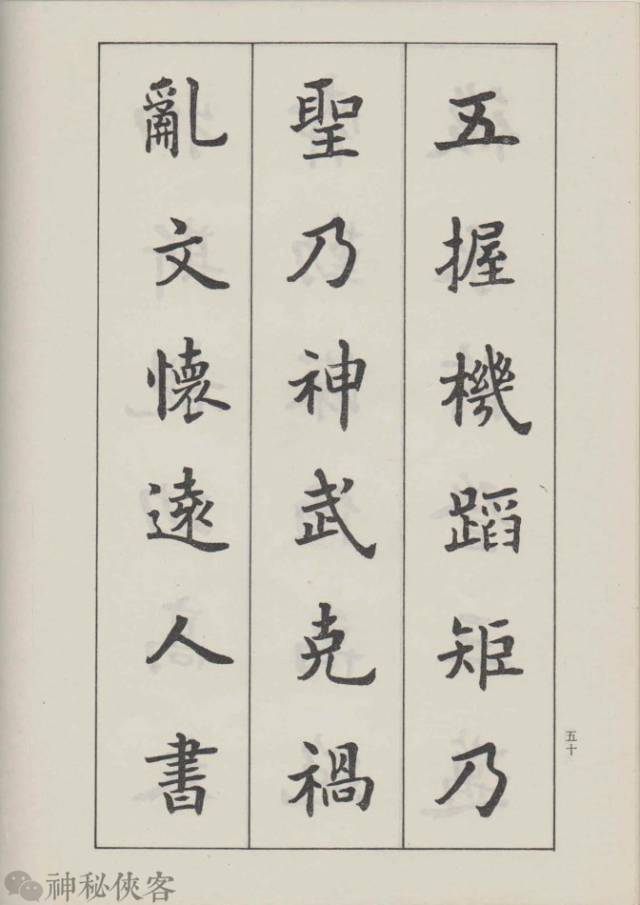 五握機蹈矩乃
聖乃神武克禍
亂文懷遠人書
五十
神秘俠客